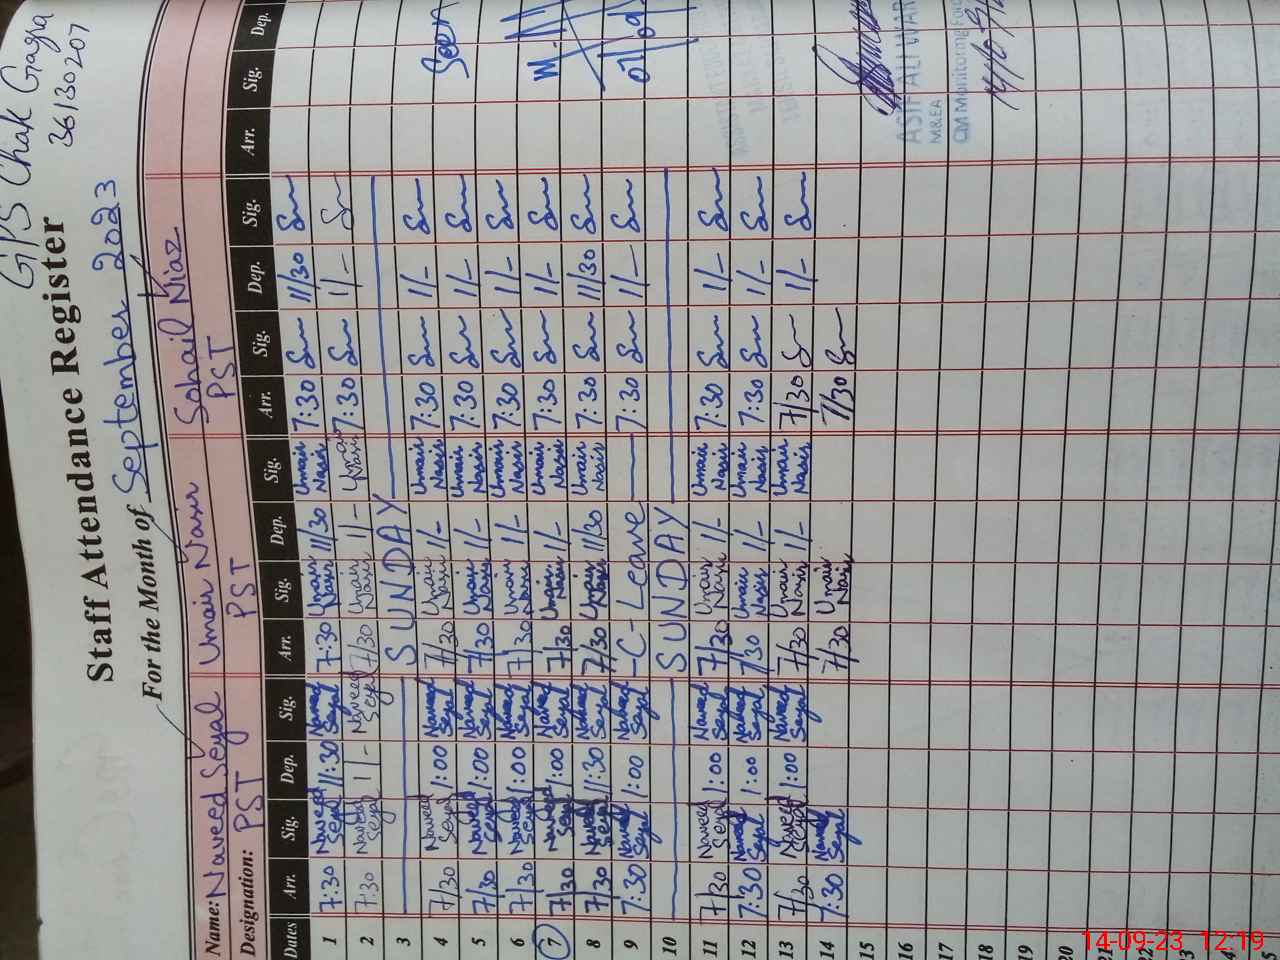 GPS Chak Gagra
36130207
Staff Attendance Register
For the Month of September 2023
Name: Naveed Seyal Umair Nasir Sohail Niaz
Designation: PST PST PST
Dates Arr. Sig. Dep. Sig. Arr. Sig. Dep. Sig. Arr. Sig. Dep. Sig. Arr. Sig. Dep.
1 7:30 Naveed Seyal 11:30 Naveed Seyal 7:30 Umair Nasir 11/30 Umair Nasir 7:30 11/30
2 7:30 Naveed Seyal 1/- Naveed Seyal 7/30 Umair Nasir 1/- Umair Nasir 7:30 1/-
3 SUNDAY
4 7/30 Naveed Seyal 1:00 Naveed Seyal 7/30 Umair Nasir 1/- Umair Nasir 7:30 1/- Seen
5 7/30 Naveed Seyal 1:00 Naveed Seyal 7/30 Umair Nasir 1/- Umair Nasir 7:30 1/-
6 7/30 Naveed Seyal 1:00 Naveed Seyal 7/30 Umair Nasir 1/- Umair Nasir 7:30 1/-
7 7/30 Naveed Seyal 1:00 Naveed Seyal 7/30 Umair Nasir 1/- Umair Nasir 7:30 1/-
8 7/30 Naveed Seyal 11:30 Naveed Seyal 7/30 Umair Nasir 11/30 Umair Nasir 7:30 11/30
9 7:30 Naveed Seyal 1:00 Naveed Seyal -C- Leave 7:30 1/-
10 SUNDAY
11 7/30 Naveed Seyal 1:00 Naveed Seyal 7/30 Umair Nasir 1/- Umair Nasir 7:30 1/-
12 7:30 Naveed Seyal 1:00 Naveed Seyal 7/30 Umair Nasir 1/- Umair Nasir 7:30 1/-
13 7/30 Naveed Seyal 1:00 Naveed Seyal 7/30 Umair Nasir 1/- Umair Nasir 7/30 1/-
14 7:30 Naveed Seyal 7/30 Umair Nasir 7/30
15
16 ASIF ALI WAR
M&EA
17 CM Monitoring Forc
18
19
20
21
22
23
24
14-09-23 12:19